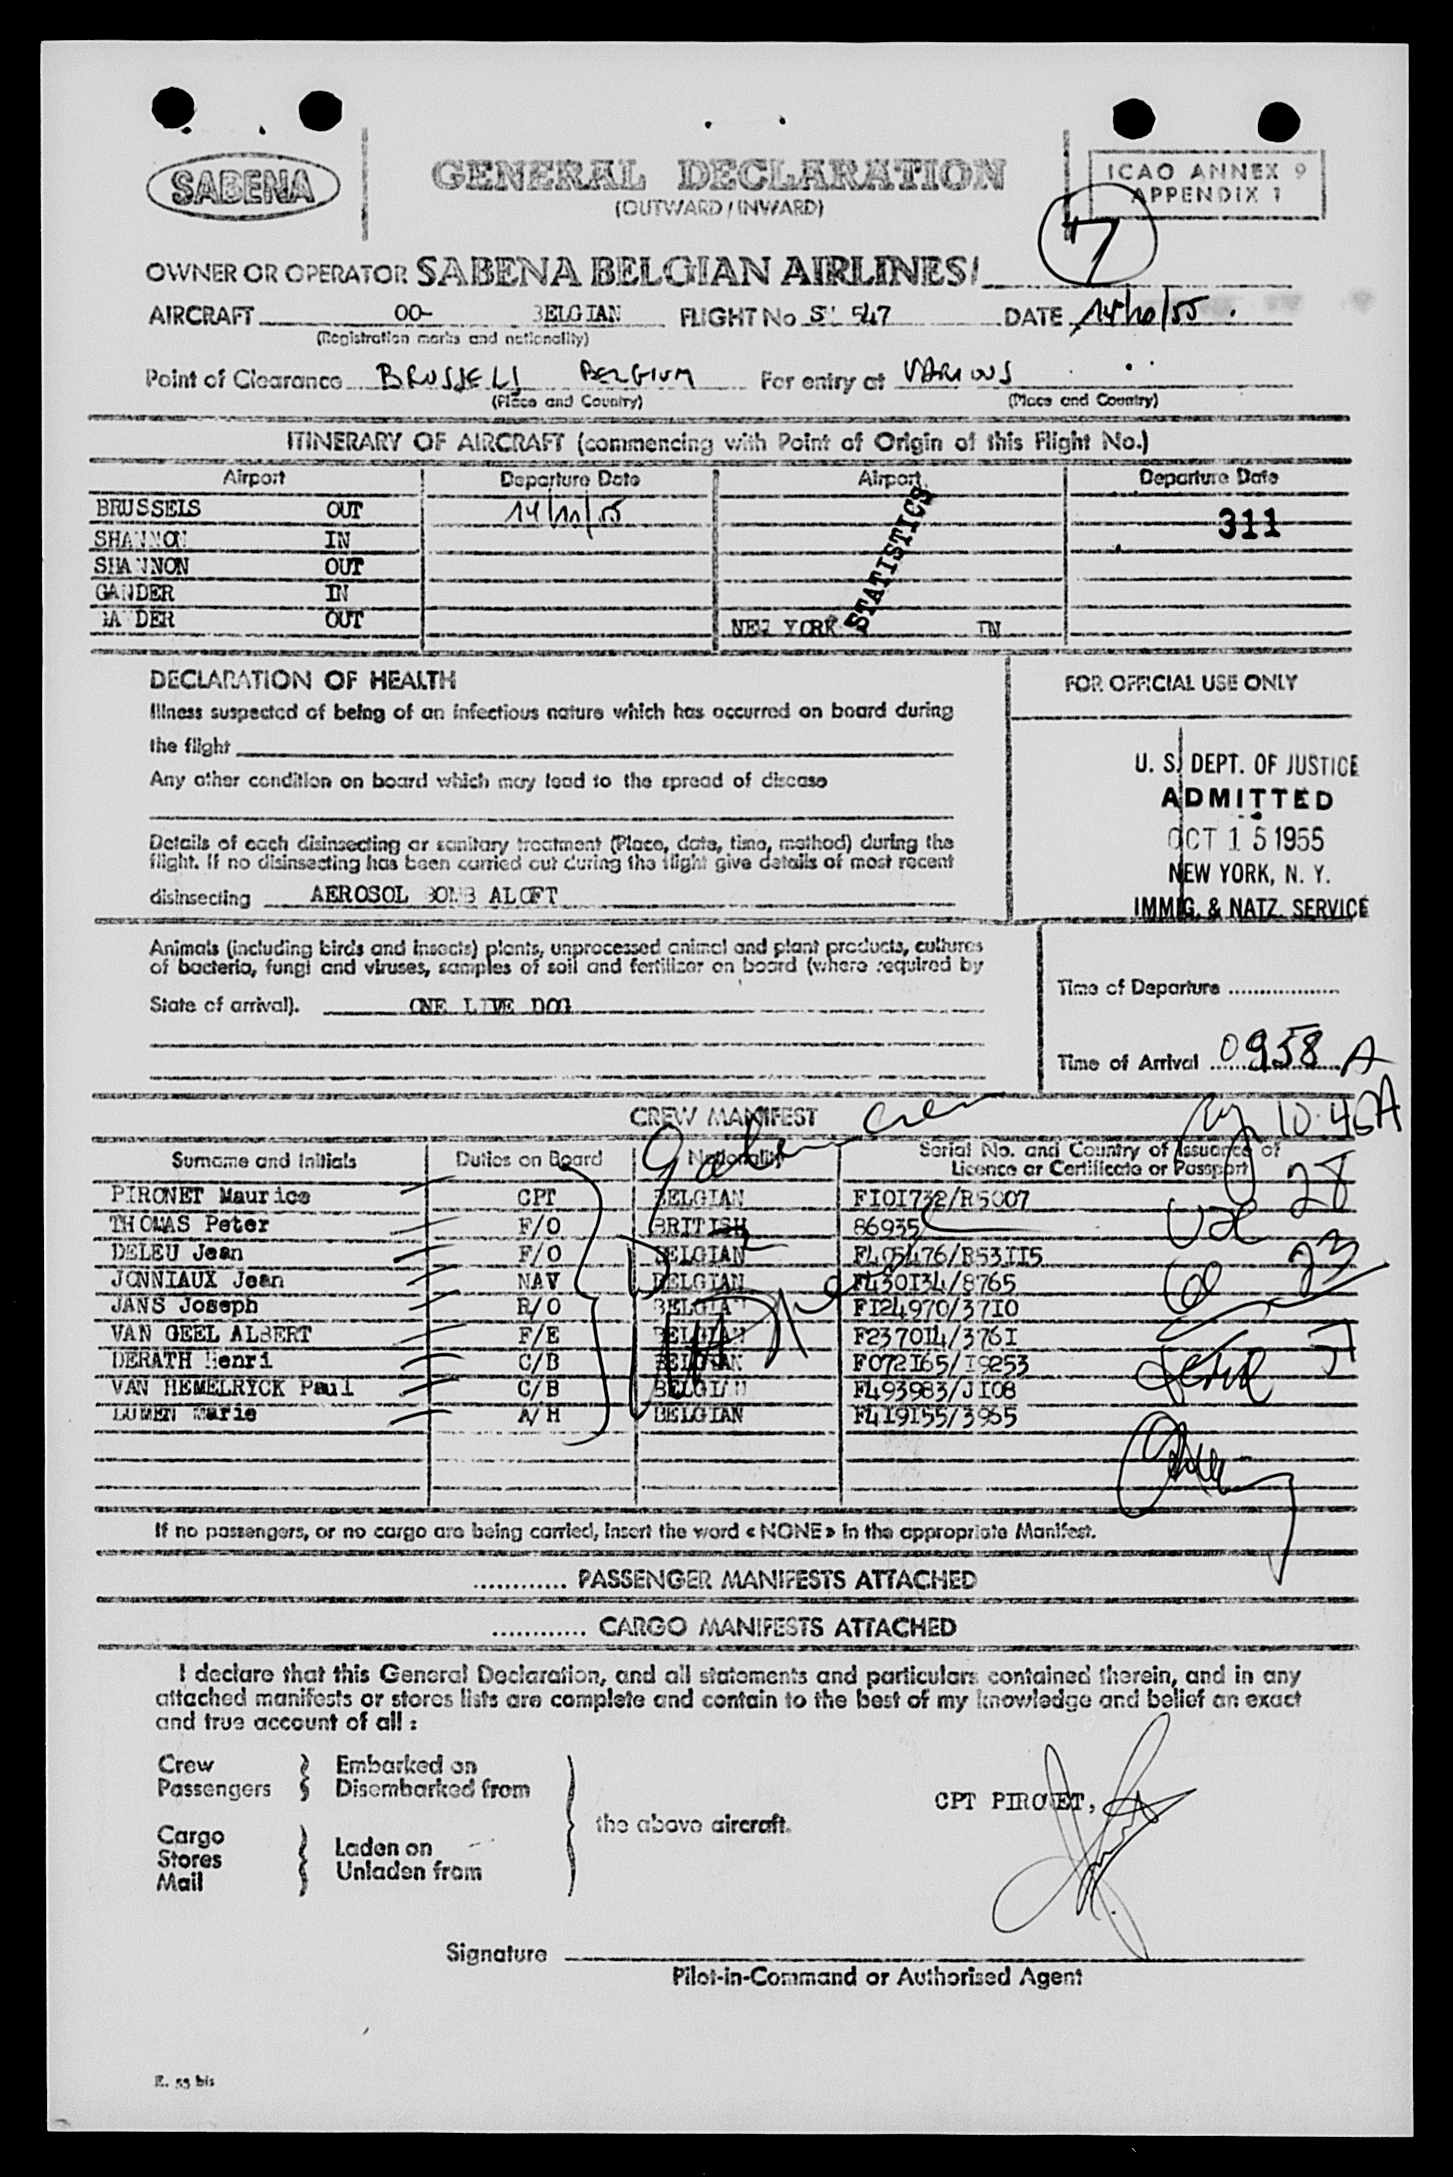 SABENA
GENERAL DECLARATION
(OUTWARD / INWARD)
ICAO ANNEX 9
APPENDIX 1
7
OWNER OR OPERATOR SABENA BELGIAN AIRLINES/
AIRCRAFT OO- BELGIAN FLIGHT No S 547 DATE 14/10/55
(Registration marks and nationality)
Point of Clearance BRUSSELS BELGIUM For entry at VARIOUS
(Place and Country) (Place and Country)
ITINERARY OF AIRCRAFT (commencing with Point of Origin of this Flight No.)
Airport Departure Date Airport Departure Date
BRUSSELS OUT 14/10/55 311
SHANNON IN
SHANNON OUT
GANDER IN
GANDER OUT NEW YORK IN
STATISTICS
DECLARATION OF HEALTH
Illness suspected of being of an infectious nature which has occurred on board during
the flight
Any other condition on board which may lead to the spread of disease
Details of each disinsecting or sanitary treatment (Place, date, time, method) during the
flight. If no disinsecting has been carried out during the flight give details of most recent
disinsecting AEROSOL BOMB ALOFT
FOR OFFICIAL USE ONLY
U. S. DEPT. OF JUSTICE
ADMITTED
OCT 15 1955
NEW YORK, N. Y.
IMMIG. & NATZ. SERVICE
Animals (including birds and insects) plants, unprocessed animal and plant products, cultures
of bacteria, fungi and viruses, samples of soil and fertilizer on board (where required by
State of arrival). ONE LIVE DOG
Time of Departure
Time of Arrival 0958 A
10.45A
CREW MANIFEST
Surname and Initials Duties on Board Nationality Serial No. and Country of Issuance of
Licence or Certificate or Passport
28
PIRONET Maurice CPT BELGIAN FI01732/R5007
THOMAS Peter F/O BRITISH 86935
DELEU Jean F/O BELGIAN F405476/R53II5
23
JONNIAUX Jean NAV BELGIAN F430I34/8765
JANS Joseph R/O BELGIAN FI24970/37I0
VAN GEEL ALBERT F/E BELGIAN F2370I4/376I
DERATH Henri C/B BELGIAN F072I65/I9253
VAN HEMELRYCK Paul C/B BELGIAN F493983/JI08
LUMEN Marie A/H BELGIAN F4I9I55/3965
If no passengers, or no cargo are being carried, insert the word « NONE » in the appropriate Manifest.
............ PASSENGER MANIFESTS ATTACHED
............ CARGO MANIFESTS ATTACHED
I declare that this General Declaration, and all statements and particulars contained therein, and in any
attached manifests or stores lists are complete and contain to the best of my knowledge and belief an exact
and true account of all :
Crew Embarked on
Passengers Disembarked from
the above aircraft.
Cargo Laden on
Stores Unladen from
Mail
CPT PIRONET,
Signature
Pilot-in-Command or Authorised Agent
E. 53 bis